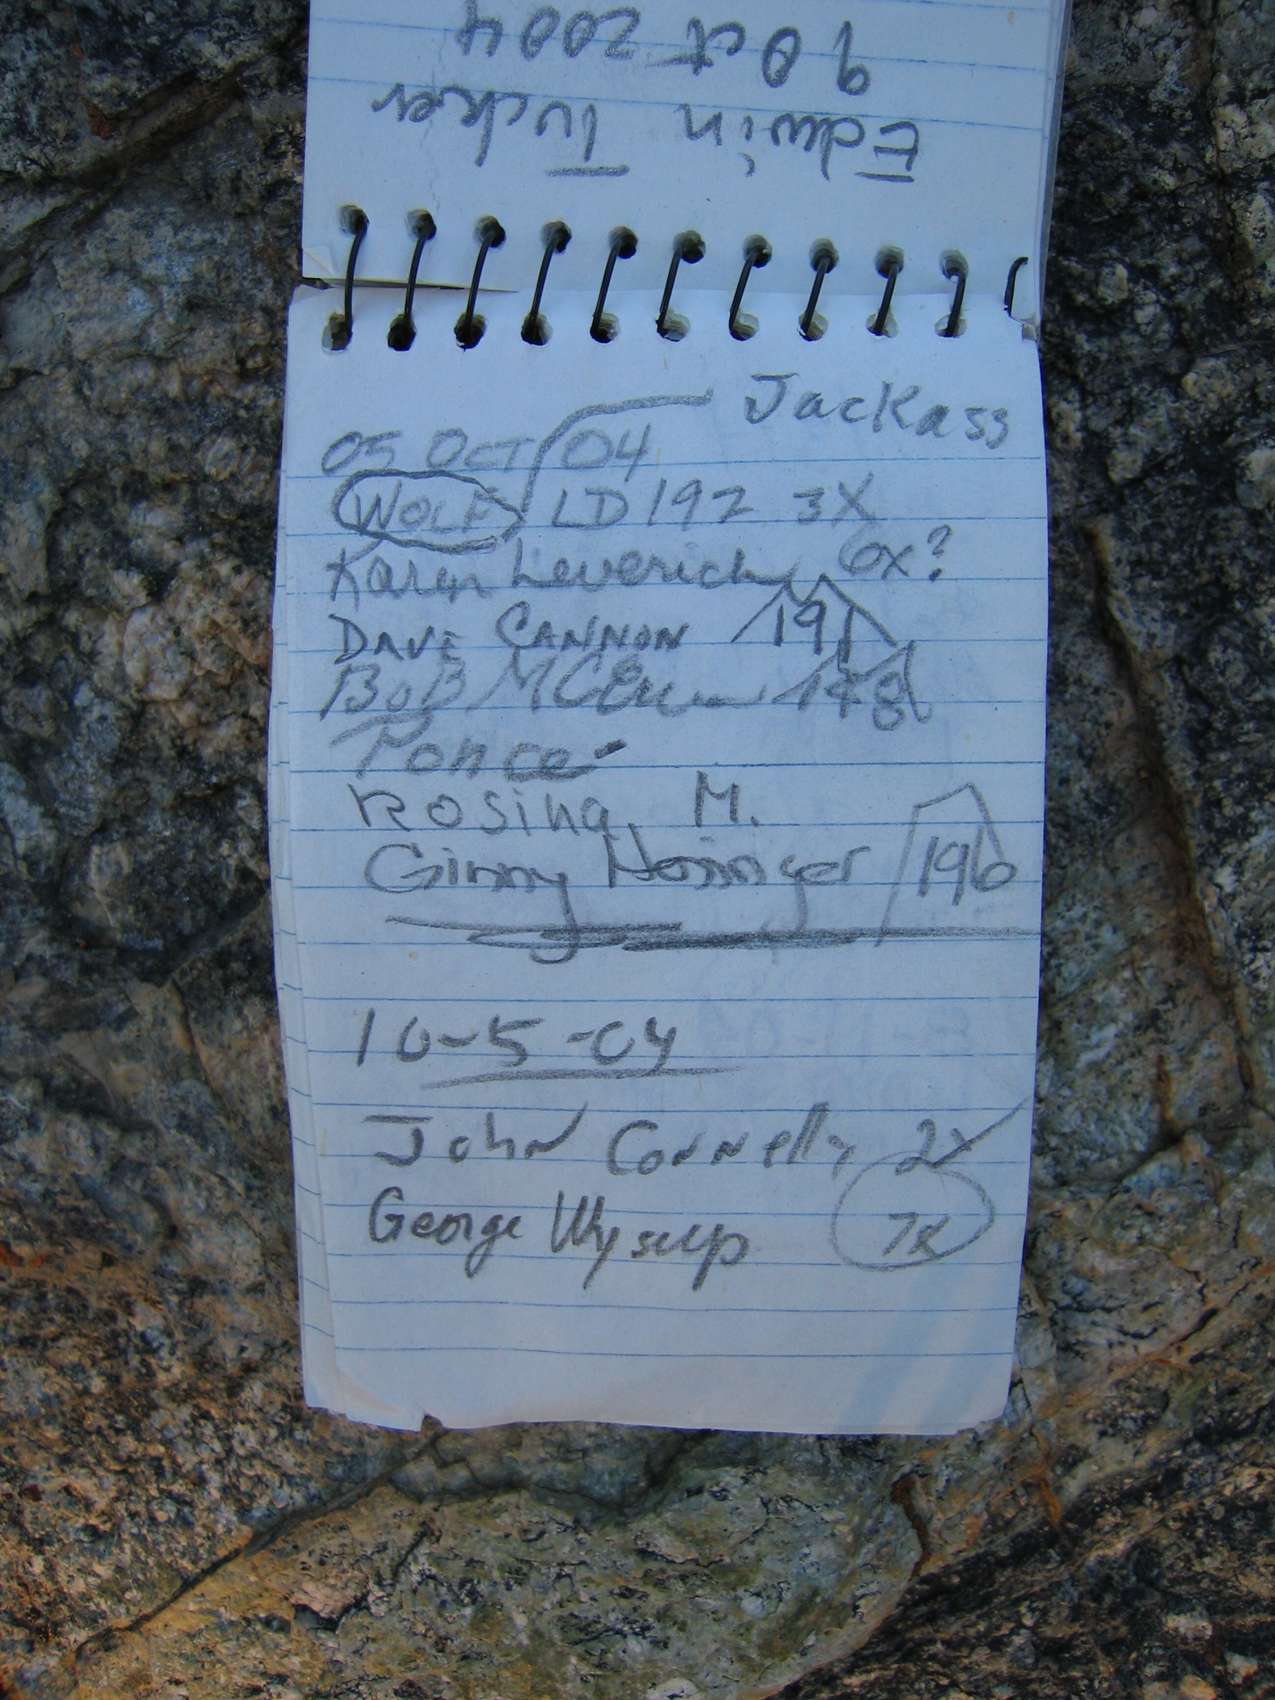 Edwin Tucker
9 Oct 2004
Jackass
05 OCT 04
WOLF LD 192 3X
Karen Leverich 6x?
DAVE CANNON 191
BOB 178
Ponce
Rosina M.
Ginny 196
10-5-04
John Connelly 2X
George Wysup 7X